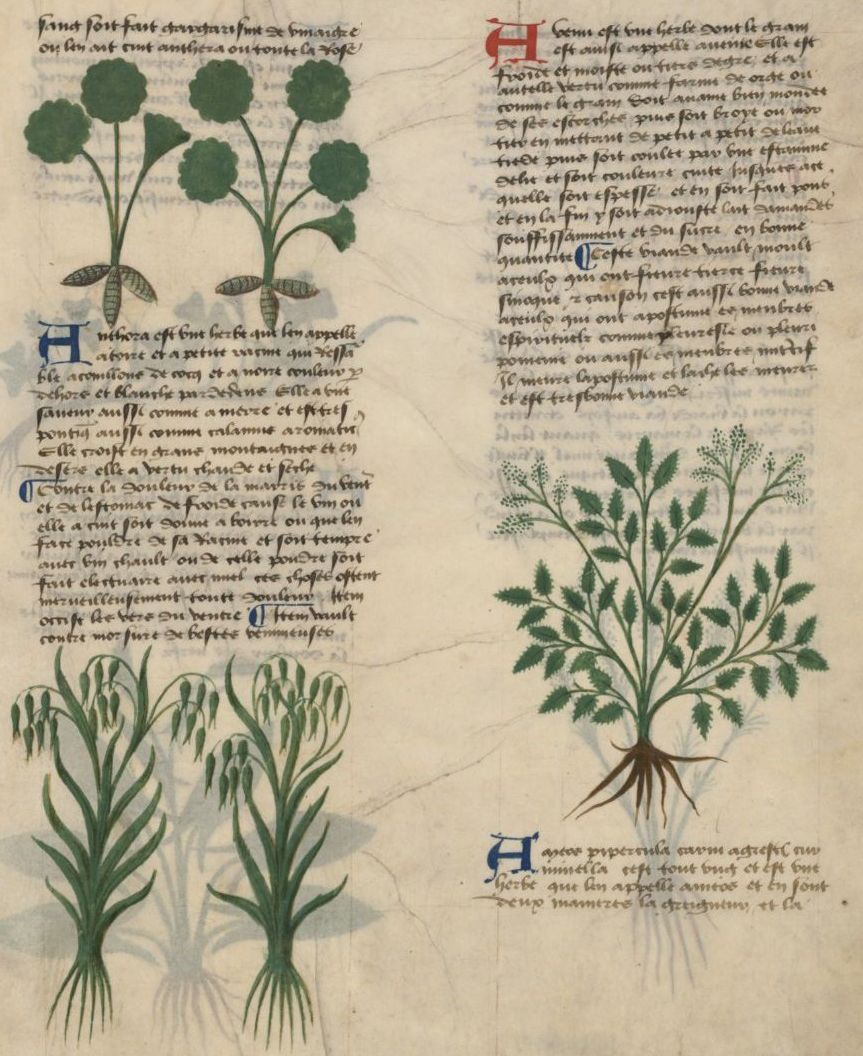 sang soit fait gargarisme de vinaigre
ou len ait cuit anthera ou toute la rose
Anthora est vne herbe que len appelle
atoire et a petite racine qui ressã
ble a couillons de cocq et a noire couleur p
dehors et blanche par dedens Elle a vne
saueur aussi comme amere et est tres
pontiq aussi comme calamus aromatic
Elle croist en grans montaignes et en
desers elle a vertu chaude et seche
Contre la douleur de la marris du vent
et de lestomac de froide cause le vin ou
elle a cuit soit donne a boire ou que len
face pouldre de sa racine et soit tempre
auec vin chault ou de celle pouldre soit
fait electuaire auec miel ces choses ostent
merueilleusement toute douleur Item
occist les vers du ventre Item vault
contre morsure de bestes venimeuses
Aveni est vne herbe dont le grain
est aussi appelle auenie Elle est
froide et moiste ou tiers degre et a
autelle vertu comme farine de orge ou
comme le grain doit auant bien mondee
de ses escorches puis soit broye ou mor
tier en mettant de petit a petit de leaue
tiede puis soit coulee par vne estamine
delie et soit couleure cuite jusques ace
quelle soit espesse et en soit fait pout
et en la fin y soit adiouste lait damandes
souffissamment et du sucre en bonne
quantite Ceste viande vault moult
aceulx qui ont fieure tierce fieure
sinoque & causon cest aussi bonne viande
aceulx qui ont apostume es menbres
espirituelz comme pleuresie ou pleuri
pomenie ou aussi es menbres interif
Il meure lapostume et lache les meures
et est tresbonne viande
Ameos pipercula carui agrest cur
minella cest tout vng et est vne
herbe que len appelle ameos et en sont
deux manieres la greigneur et la